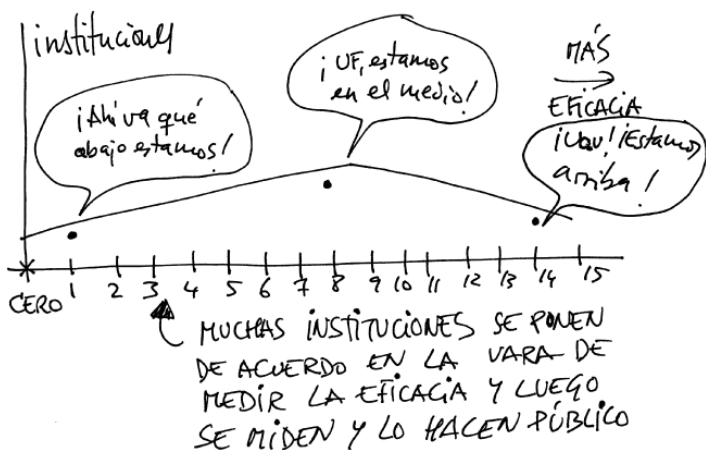 instituciones
¡Ahi va qué
abajo estamos!
¡UF, estamos
en el medio!
MÁS
EFICACIA
¡Uau! ¡Estamos
arriba!
CERO 1 2 3 4 5 6 7 8 9 10 11 12 13 14 15
MUCHAS INSTITUCIONES SE PONEN
DE ACUERDO EN LA VARA DE
MEDIR LA EFICACIA Y LUEGO
SE MIDEN Y LO HACEN PÚBLICO